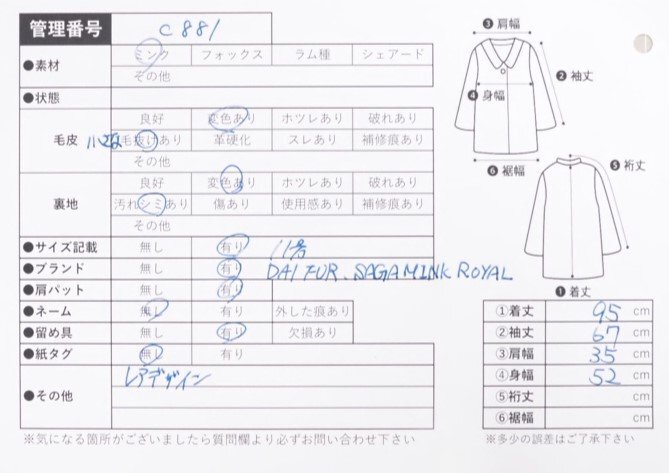 管理番号 C881
●素材 ミンク フォックス ラム種 シェアード
その他
●状態
毛皮 良好 変色あり ホツレあり 破れあり
小さな 毛抜けあり 革硬化 スレあり 補修痕あり
その他
裏地 良好 変色あり ホツレあり 破れあり
汚れシミあり 傷あり 使用感あり 補修痕あり
その他
●サイズ記載 無し 有り 11号
●ブランド 無し 有り DAI FUR. SAGA MINK ROYAL
●肩パット 無し 有り
●ネーム 無し 有り 外した痕あり
●留め具 無し 有り 欠損あり
●紙タグ 無し 有り
●その他 レアデザイン
※気になる箇所がございましたら質問欄より必ずお問い合わせ下さい
❸肩幅
❷袖丈
❹身幅
❻裾幅
❺裄丈
❶着丈
①着丈 95 cm
②袖丈 67 cm
③肩幅 35 cm
④身幅 52 cm
⑤裄丈 cm
⑥裾幅 cm
※多少の誤差はご了承下さい